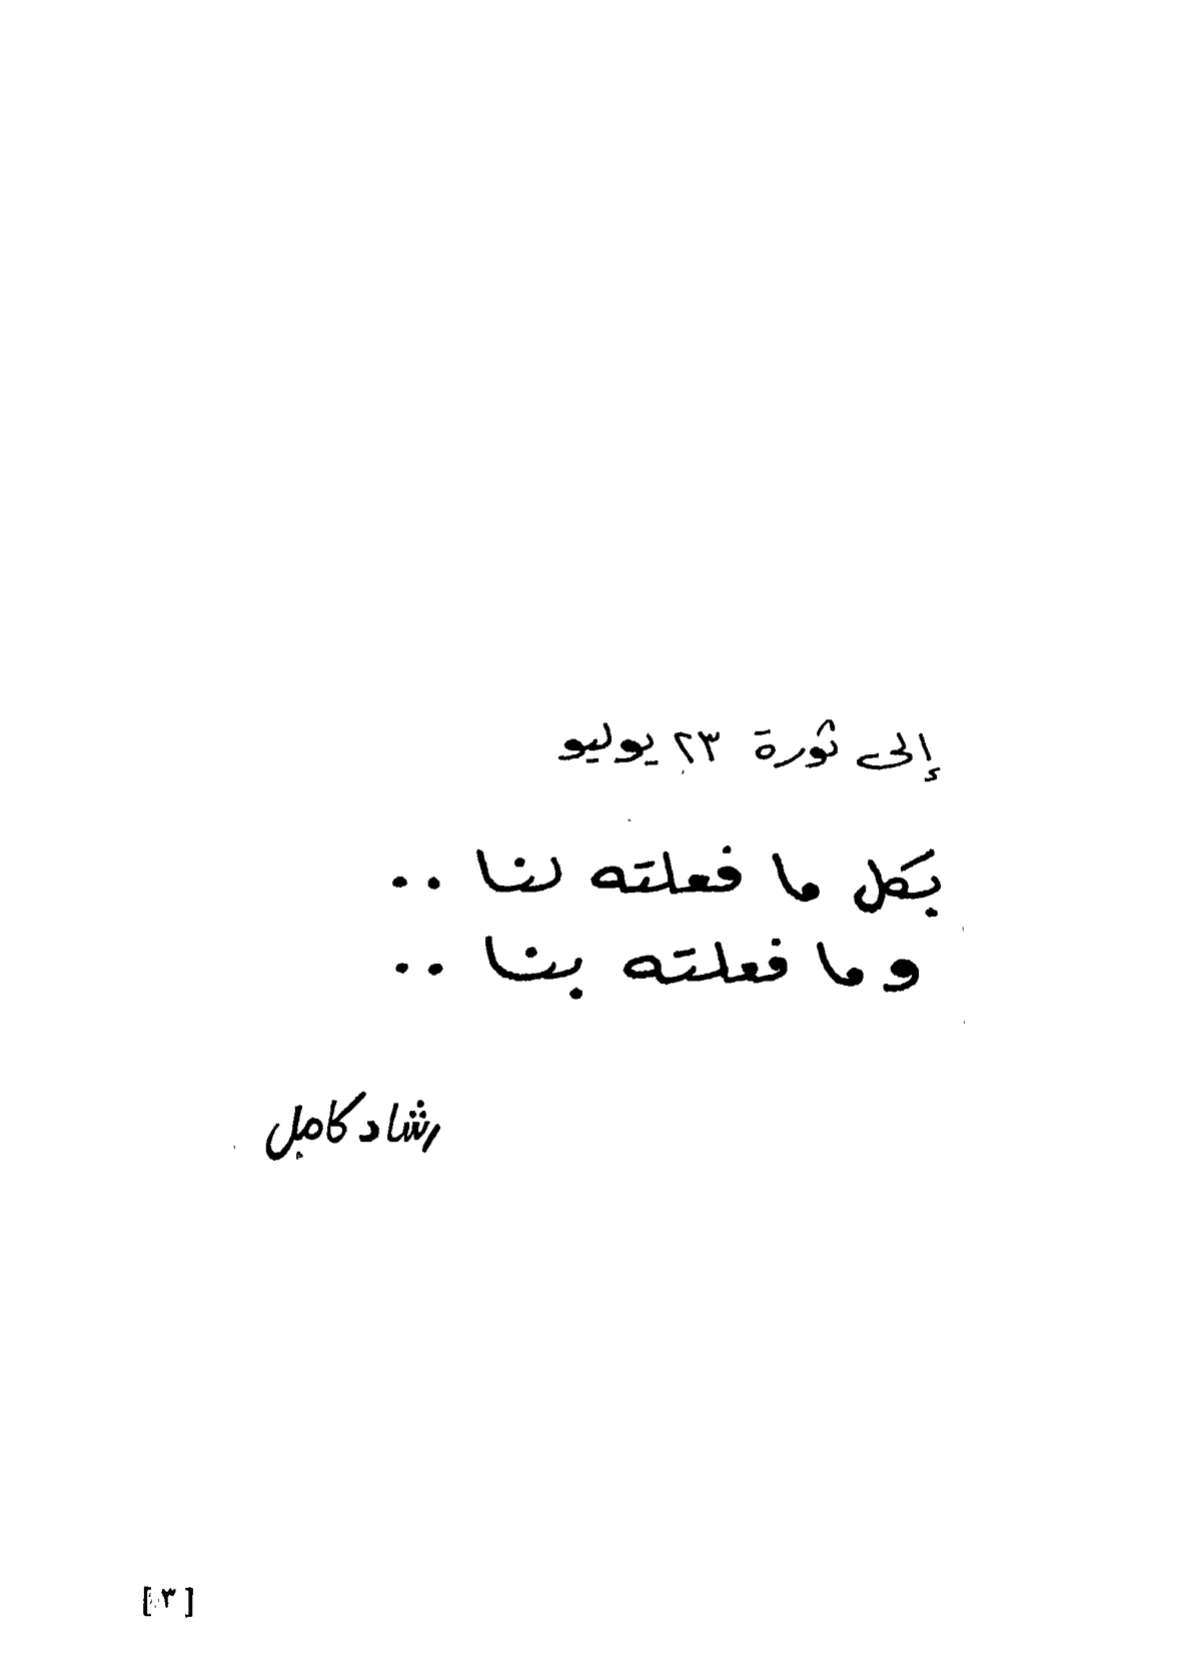 إلى ثورة ٢٣ يوليو
بكل ما فعلته لنا ..
وما فعلته بنا ..
رشاد كامل
[ ٣ ]